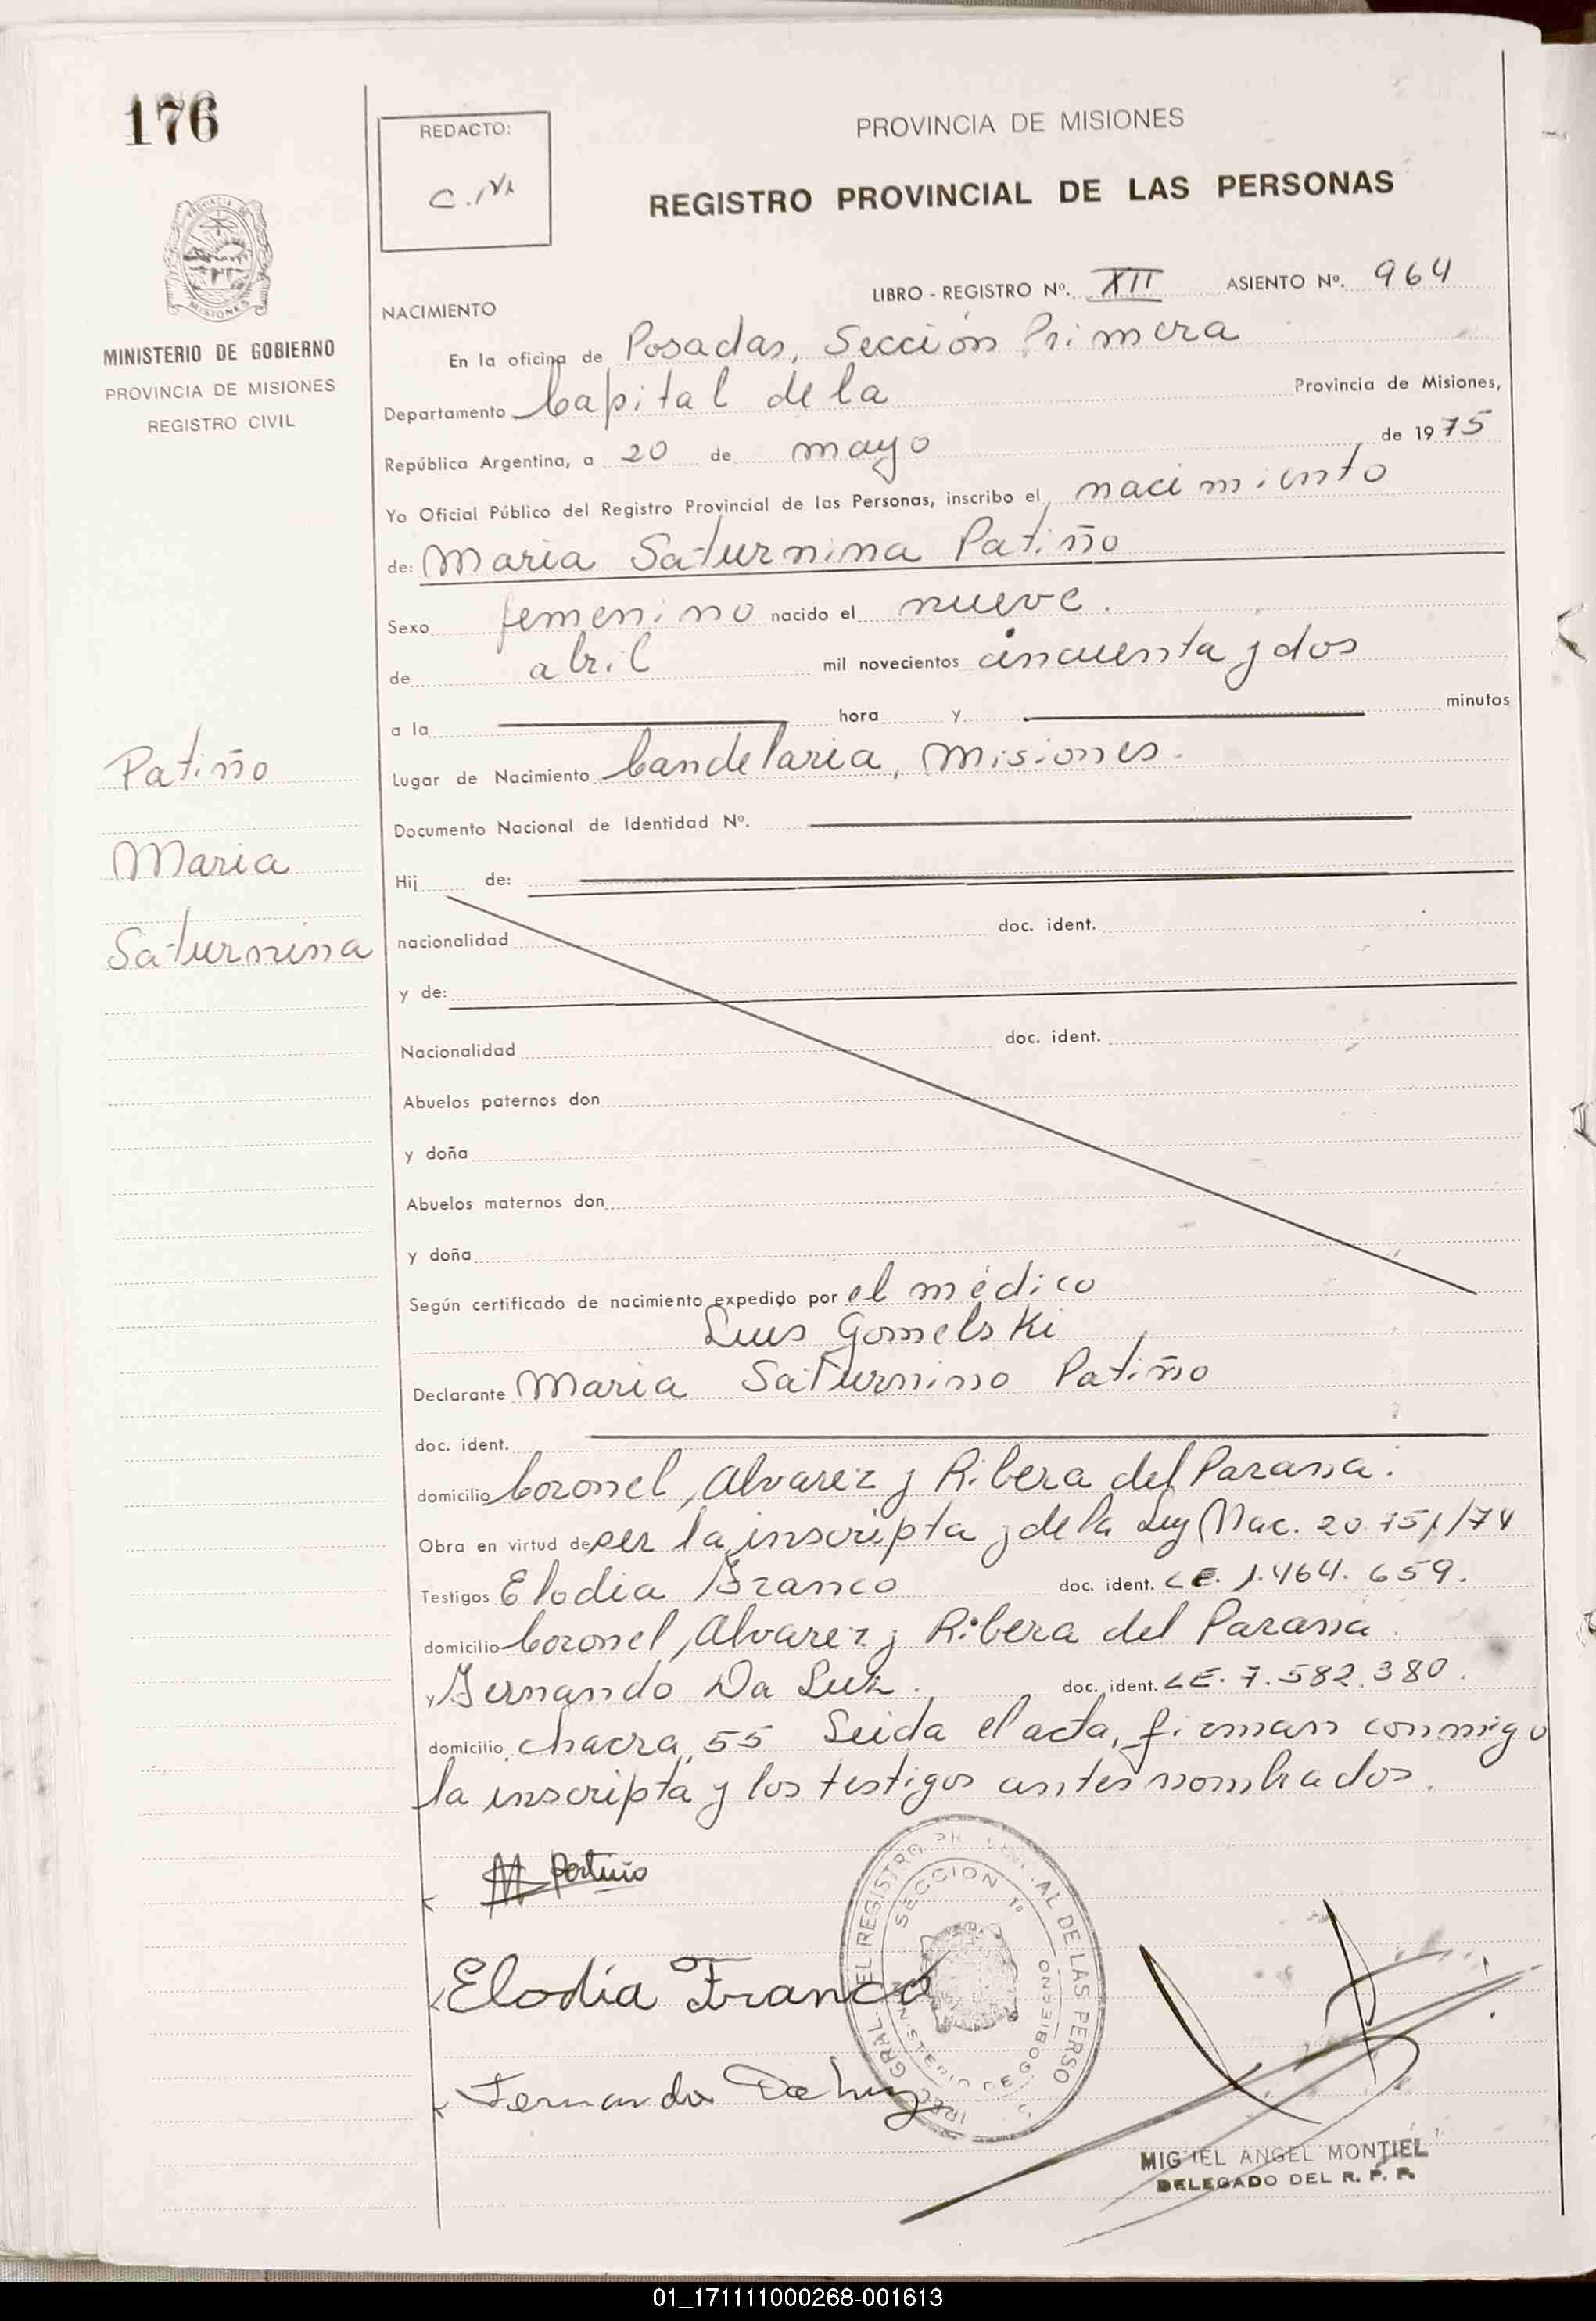 176
REDACTO:
PROVINCIA DE MISIONES
REGISTRO PROVINCIAL DE LAS PERSONAS
LIBRO - REGISTRO Nº. XII ASIENTO Nº. 964
PROVINCIA DE
MISIONES
MINISTERIO DE GOBIERNO
PROVINCIA DE MISIONES
REGISTRO CIVIL
NACIMIENTO
En la oficina de Posadas, Sección Primera
Departamento Capital de la Provincia de Misiones,
República Argentina, a 20 de mayo de 1975
Yo Oficial Público del Registro Provincial de las Personas, inscribo el nacimiento
de: Maria Saturnina Patiño
Sexo femenino nacido el nueve.
de abril mil novecientos cincuenta y dos
a la hora y minutos
Patiño
Maria
Saturnina
Lugar de Nacimiento Candelaria, Misiones.
Documento Nacional de Identidad Nº.
Hij de:
nacionalidad doc. ident.
y de:
Nacionalidad doc. ident.
Abuelos paternos don
y doña
Abuelos maternos don
y doña
Según certificado de nacimiento expedido por el médico
Luis Gomelski
Declarante Maria Saturnino Patiño
doc. ident.
domicilio Coronel, Alvarez y Ribera del Parana.
Obra en virtud de ser la inscripta y de la Ley Nac. 20.751/74
Testigos Elodia Franco doc. ident. LE. 1.464.659.
domicilio Coronel, Alvarez y Ribera del Parana.
y Fernando Da Luz. doc. ident. LE. 7.582.380.
domicilio chacra, 55 Leida el acta, firman conmigo
la inscripta y los testigos antes nombrados.
Elodia Franco
SECCION 1º
MINISTERIO DE GOBIERNO
Fernando Da Luz
MIGUEL ANGEL MONTIEL
DELEGADO DEL R. P. P.
01_171111000268-001613